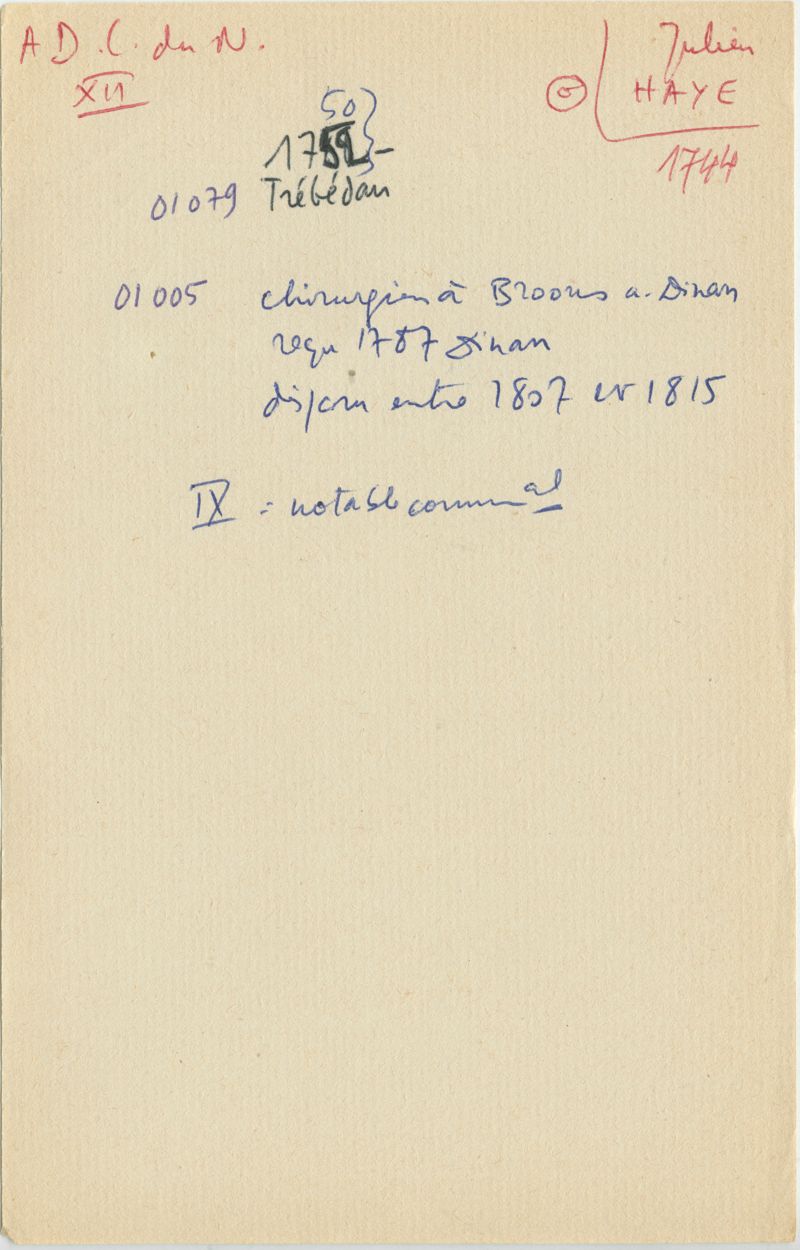 A D. C. du N.
XII
Julien
HAYE
1744
50
1752 -
01079 Trébédan
01005 chirurgien à Broons a. Dinan
reçu 1787 Dinan
disparu entre 1807 et 1815
IX = notable communal